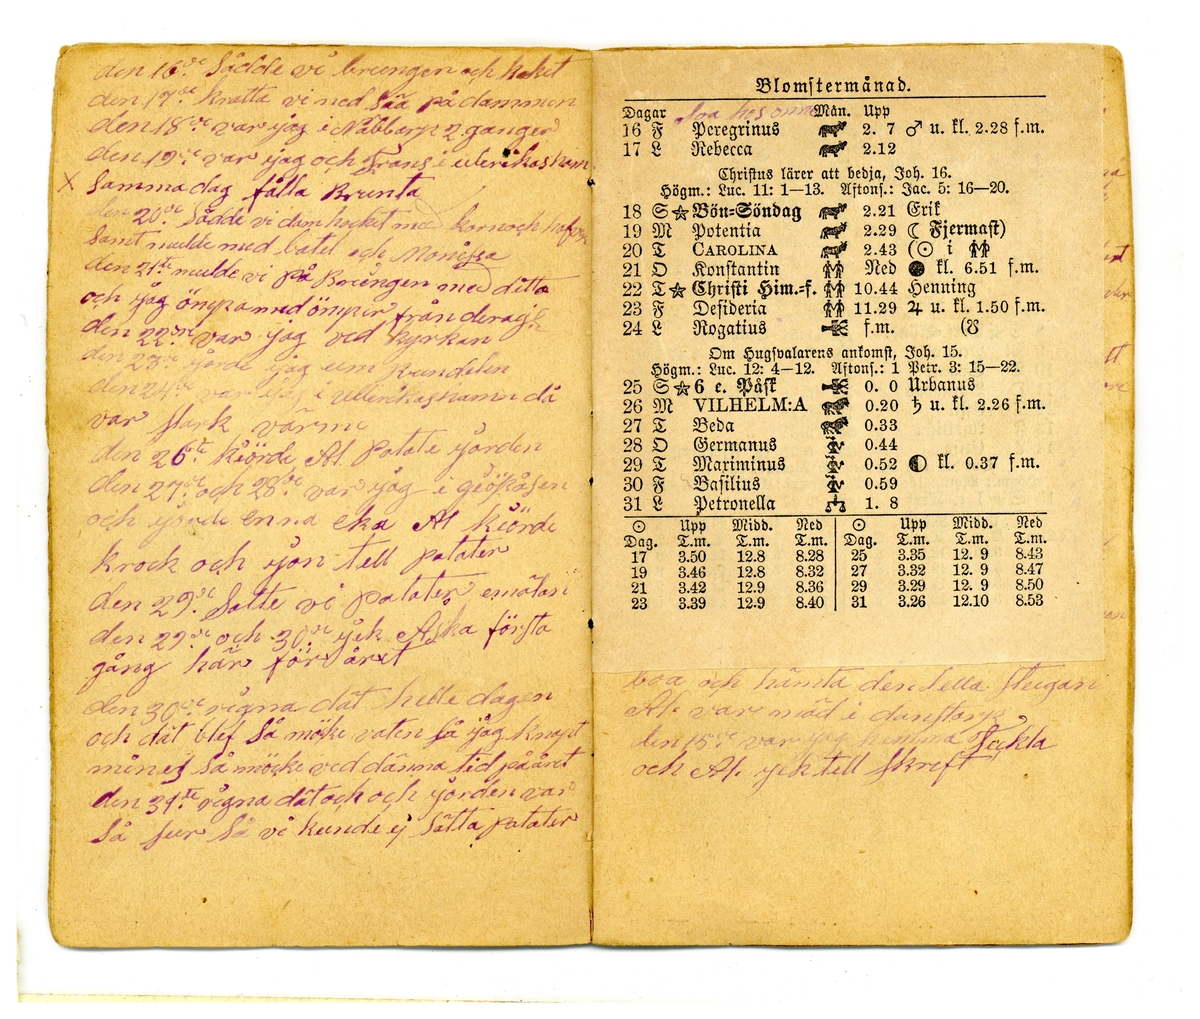 den 16de Sådde vi brungen och haket
den 17de kratta vi ned Säa på dammen
den 18de var ijag i Nabbarp 2 ganger
den 19de var ijag och Frans i ulerikasham
X Samma dag fålla Brunta
den 20de Sådde vi dam haket med korn och
Samt mulde med batel och
den 21te mulde vi på Brungen med ditta
och ijag från
den 22dre var ijag ved kyrkan
den 23de ijorde ijag um kundelen
den 24de var ijag i ullerikashamn då
var stark värme
den 26te kiörde Al. Patate ijorden
den 27de och 28de var ijag i
och ijorde enna eka Al kiörde
krock och ijon tell patater
den 29de Satte vi patater
den 29de och 30de ijek Aska första
gång här för året
den 30de rigna dät helle dagen
och dät blef Så möke vaten Så ijag knapt
mines Så möcke ved dänna tid på året
den 31te rigna dät och och ijorden var
Så sur Så vi kunde ej Sätta patater
Blomstermånad.
Dagar Mån. Upp
16 F Peregrinus 2. 7 ♂ u. kl. 2.28 f.m.
17 L Rebecca 2.12
Christus lärer att bedja, Joh. 16.
Högm.: Luc. 11: 1—13. Aftons.: Jac. 5: 16—20.
18 S☆ Bön-Söndag 2.21 Erik
19 M Potentia 2.29 ☾ Fjermast)
20 T CAROLINA 2.43 (☉ i ♊
21 O Konstantin Ned ● kl. 6.51 f.m.
22 T☆ Christi Him.-f. 10.44 Henning
23 F Desideria 11.29 ♃ u. kl. 1.50 f.m.
24 L Rogatius f.m. (☋
Om Hugsvalarens ankomst, Joh. 15.
Högm.: Luc. 12: 4—12. Aftons.: 1 Petr. 3: 15—22.
25 S☆ 6 e. Påsk 0. 0 Urbanus
26 M VILHELM:A 0.20 ♄ u. kl. 2.26 f.m.
27 T Beda 0.33
28 O Germanus 0.44
29 T Mariminus 0.52 ◐ kl. 0.37 f.m.
30 F Basilius 0.59
31 L Petronella 1. 8
☉ Upp Midd. Ned ☉ Upp Midd. Ned
Dag. T.m. T.m. T.m. Dag. T.m. T.m. T.m.
17 3.50 12.8 8.28 25 3.35 12. 9 8.43
19 3.46 12.8 8.32 27 3.32 12. 9 8.47
21 3.42 12.9 8.36 29 3.29 12. 9 8.50
23 3.39 12.9 8.40 31 3.26 12.10 8.53
boa och hämta den lella
Al. var mäd i danstorp
den 15de var ijag hemma Täkla
och Al. ijek tell skrift